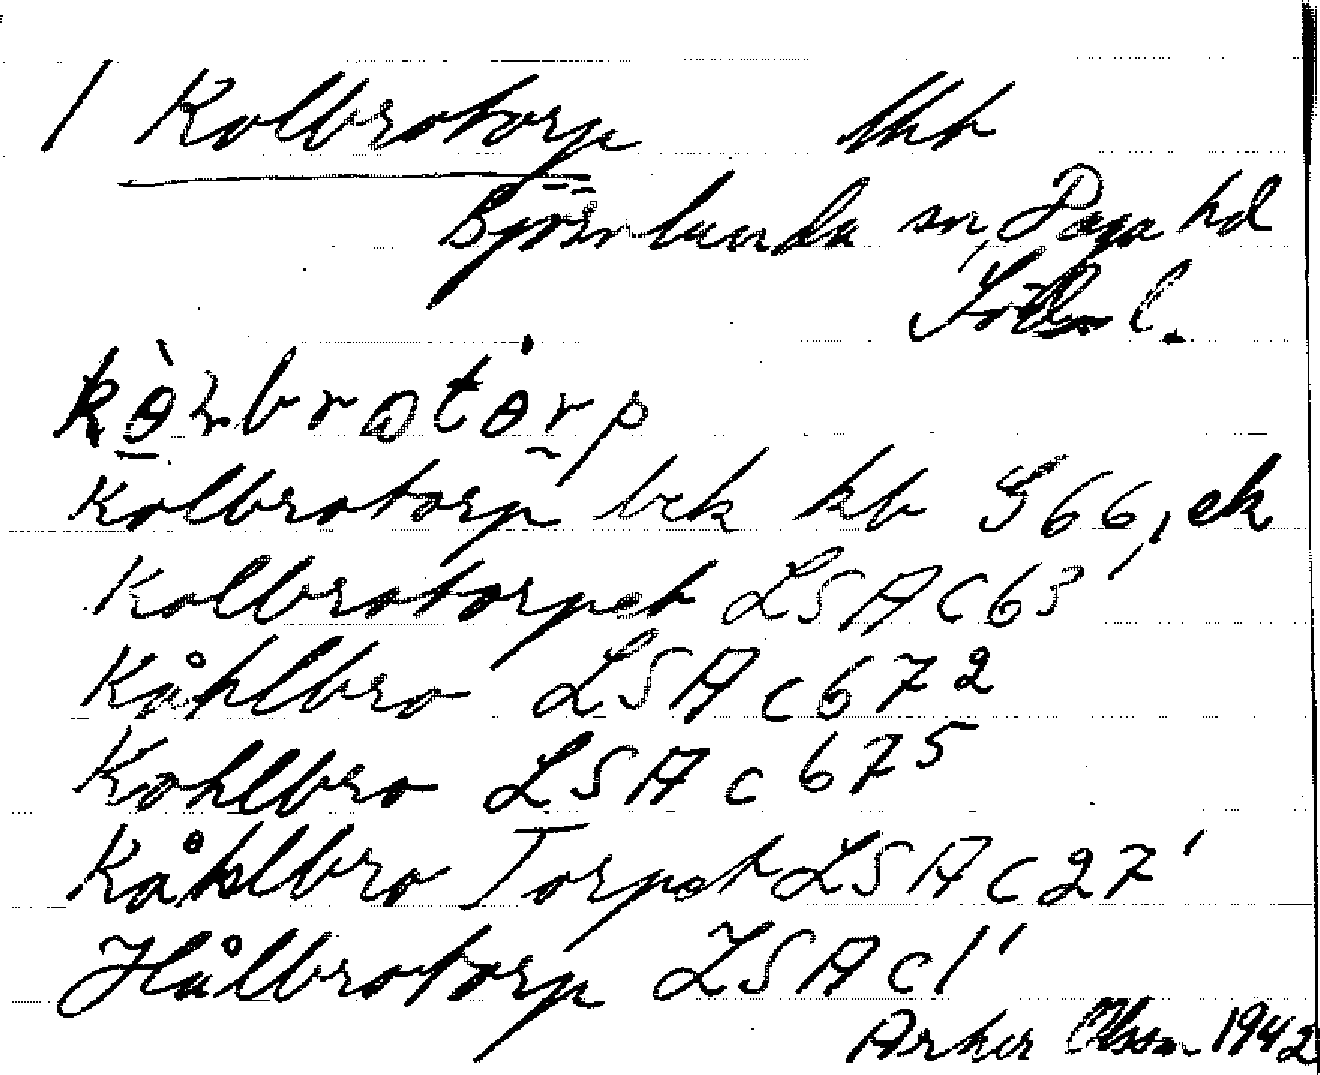 1 Kolbrotorp lht
Björnlunda sn, Daga hd
Södml.
Kolbrotorp bek kb G66, ek
Kolbrotorpet LSA C63¹
Kåhlbro LSA C67²
Kohlbro LSA C67⁵
Kåhlbro Torpet LSA C27¹
Hålbrotorp LSA C1¹
Olsson 1942